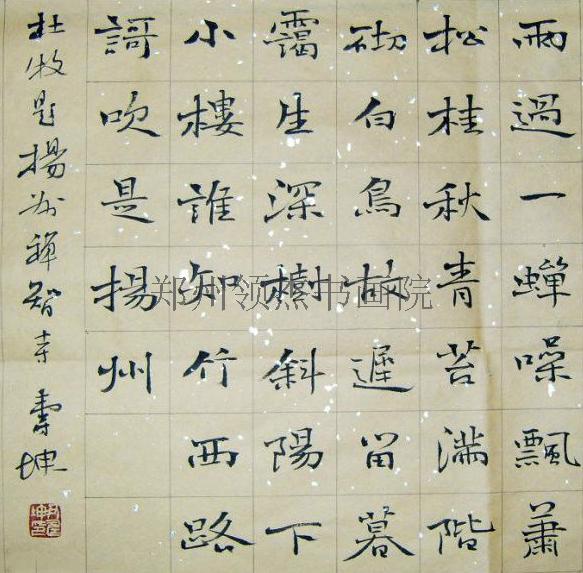 雨過一蟬噪飄蕭
松桂秋青苔滿階
砌白鳥故遲留暮
靄生深樹斜陽下
小樓誰知竹西路
謌吹是揚州
杜牧題揚州禪智寺 壽坤
郑州领 书画院